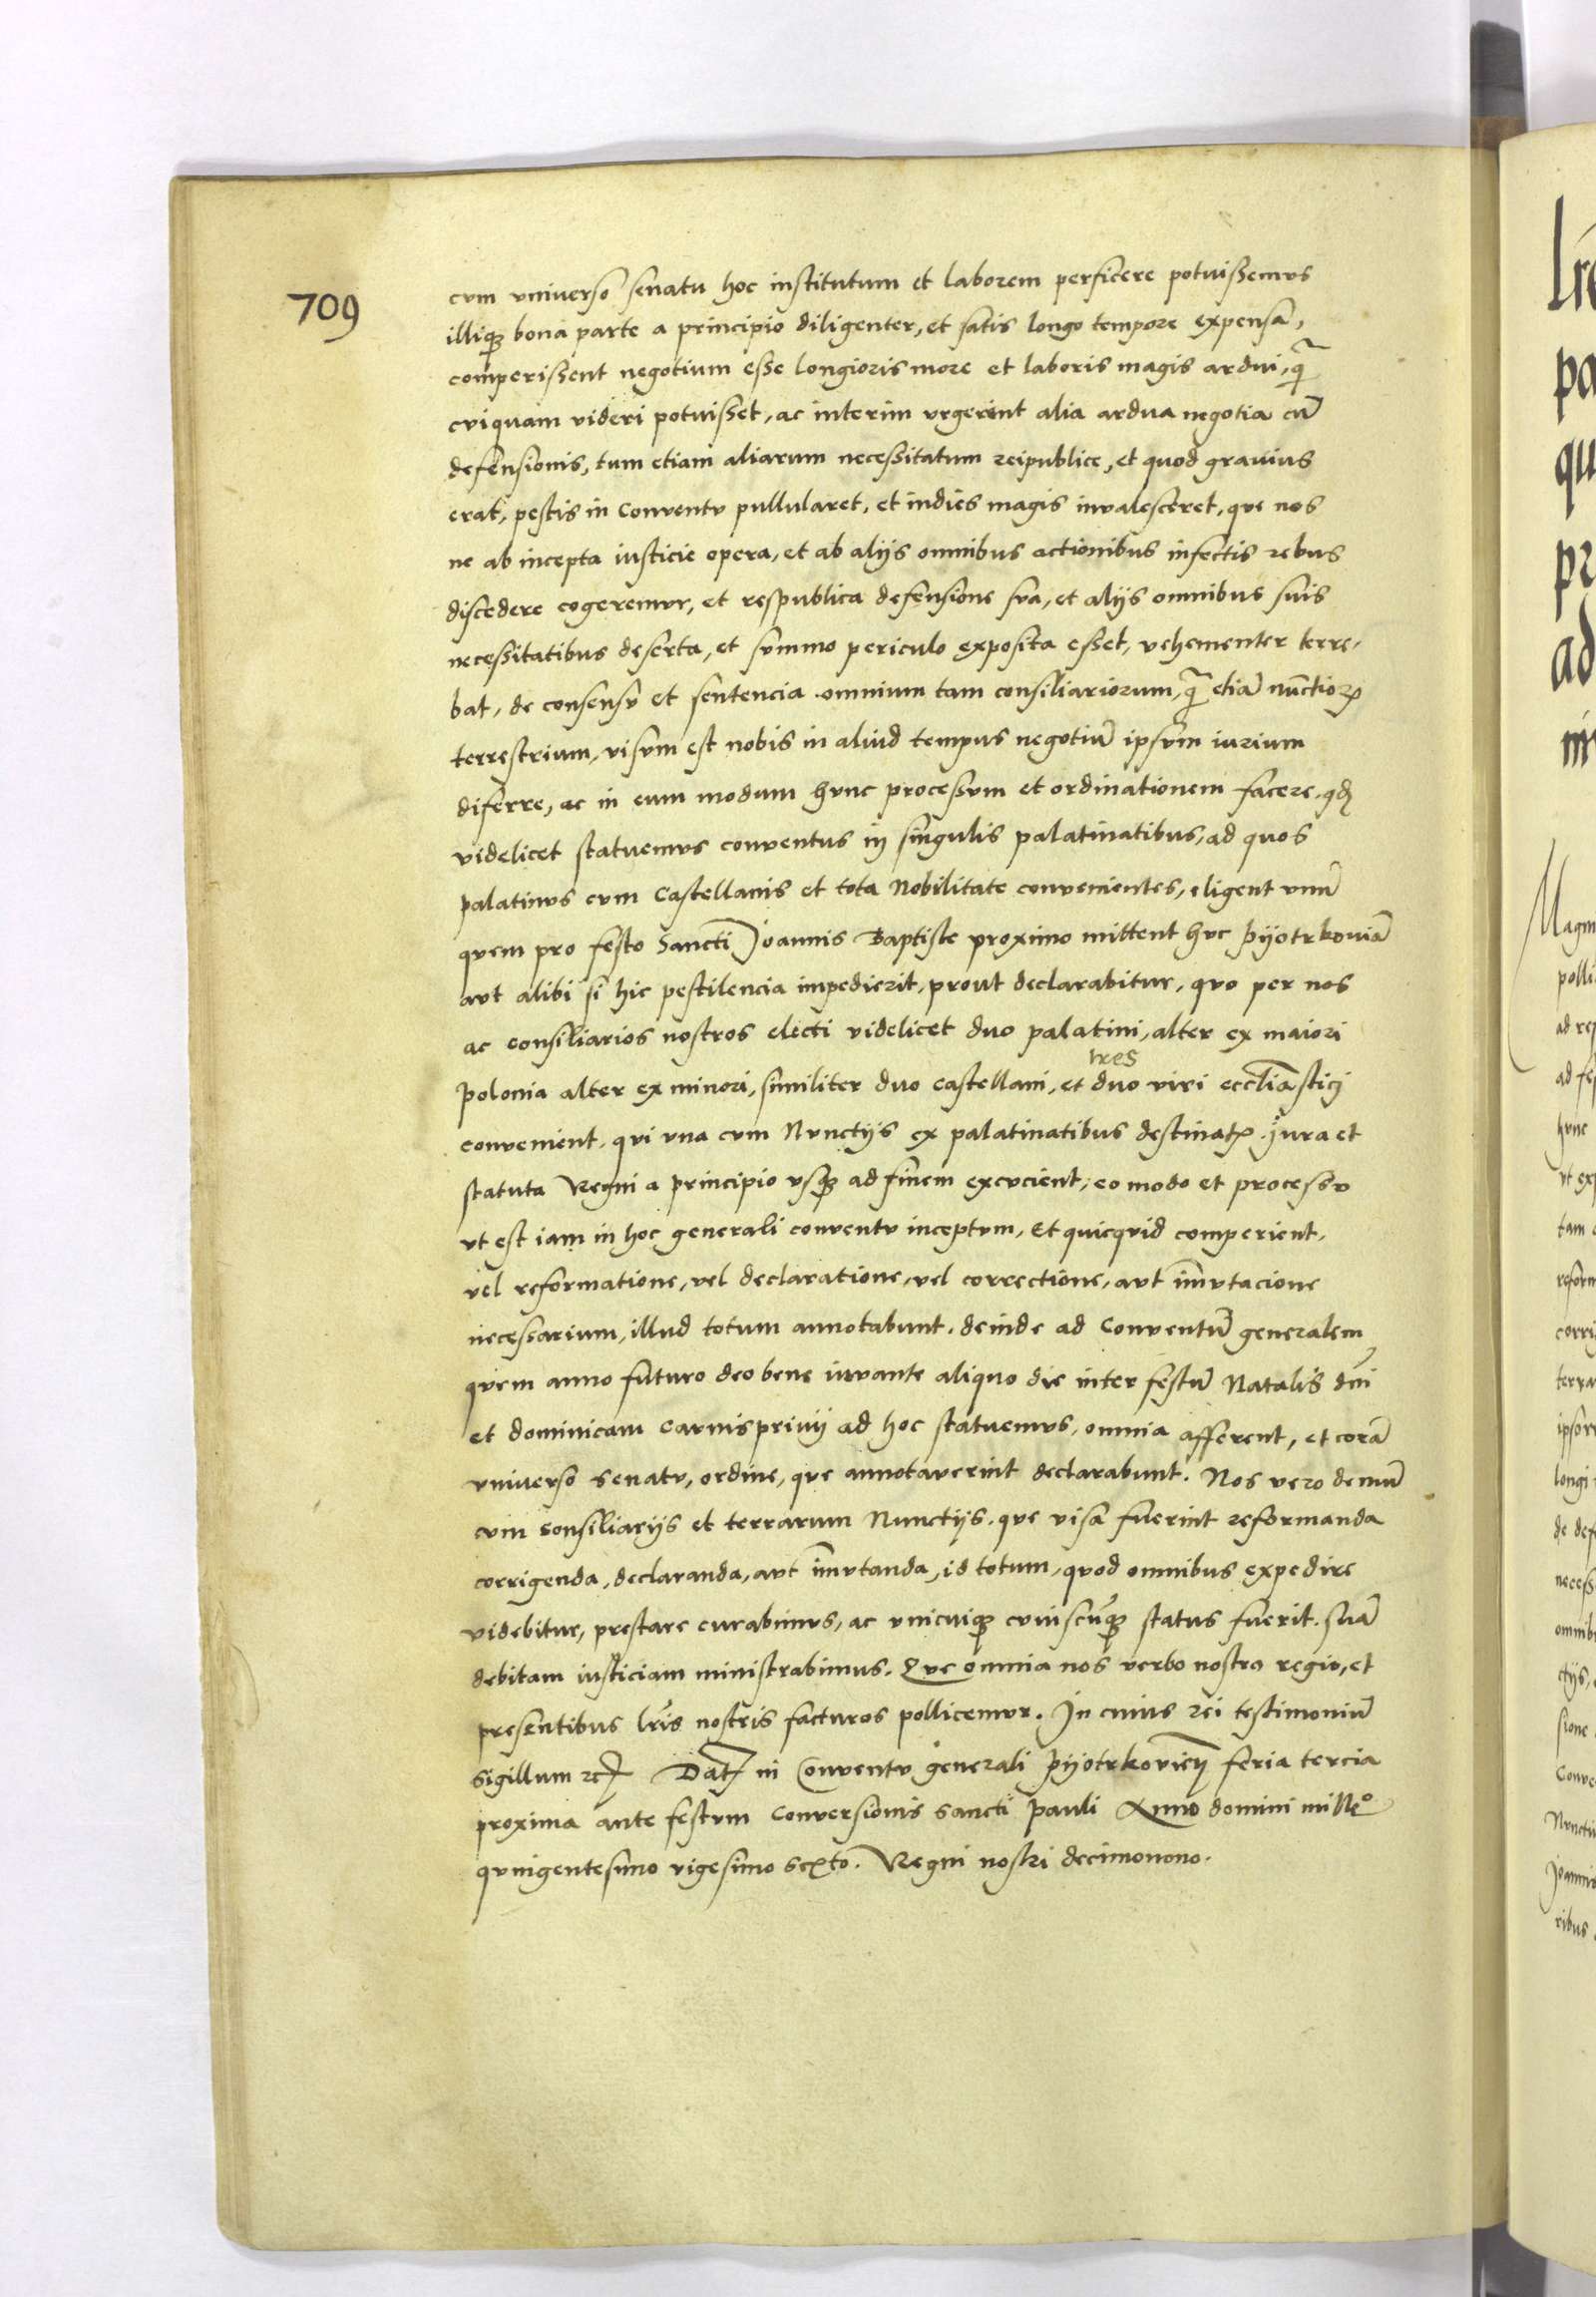 709
cum universo senatu hoc institutum et laborem perficere potuissemus
illiqꝫ bona parte a principio diligenter, et satis longo tempore expensa,
comperissent negotium esse longioris more et laboris magis ardui, q̃
cuiquam videri potuisset, ac interim vrgerent alia ardua negotia cũ
defensionis, tum etiam aliarum necessitatum reipublice, et quod gravius
erat, pestis in Conventu pullularet, et indies magis invalesceret, que nos
ne ab incepta iusticie opera, et ab alijs omnibus actionibus infectis rebus
discedere cogeremur, et respublica defensione sua, et alijs omnibus suis
necessitatibus deserta, et summo periculo exposita esset, vehementer terre-
bat, de consensu et sentencia omnium tam consiliariorum, q̃ etiã nũctioꝝ
terrestrium, visum est nobis in aliud tempus negotiũ ipsum iurium
diferre, ac in eum modum hunc processum et ordinationem facere. qđ
videlicet statuemus conventus in singulis palatinatibus, ad quos
palatinus cum Castellanis et tota Nobilitate convenientes, eligent vnũ
quem pro festo Sancti Joannis Baptiste proximo mittent huc Pyotrkoviã
aut alibi si hic pestilencia impedierit, prout declarabitur, quo per nos
ac consiliarios nostros electi videlicet duo palatini, alter ex maiori
Polonia alter ex minori, similiter duo castellani, et duo viri eccl̃iastici
tres
convenient. qui vna cum Nunctijs ex palatinatibus destinatꝭ. jura et
statuta Regni a principio vsqꝫ ad finem excucient, eo modo et processu
ut est iam in hoc generali conventu inceptum, Et quicquid comperient,
vel reformatione, vel declaratione, vel correctione, aut im̃utacione
necessarium, illud totum annotabunt. deinde ad Conventũ generalem
quem anno futuro deo bene iuvante aliquo die inter festũ Natalis dñi
et dominicam carnisprivij ad hoc statuemus, omnia afferent, et corã
universo senatu, ordine, que annotaverint declarabunt. Nos vero demũ
cum consiliarijs et terrarum Nunctijs. que visa fuerint reformanda
corrigenda, declaranda, aut im̃utanda, id totum, quod omnibus expedire
videbitur, prestare curabimus, ac vnicuiqꝫ cuiuscũqꝫ status fuerit. suã
debitam iusticiam ministrabimus. Que omnia nos verbo nostro regio, et
presentibus lr̃is nostris facturos pollicemur. In cuius rei testimoniũ
sigillum ꝛcꝭ Datꝭ in Conventu generali Pyotrkovien̄ feria tercia
proxima ante festum Conversionis sancti Pauli Anno domini milleº
quingentesimo vigesimo sexto. Regni nostri decimonono.